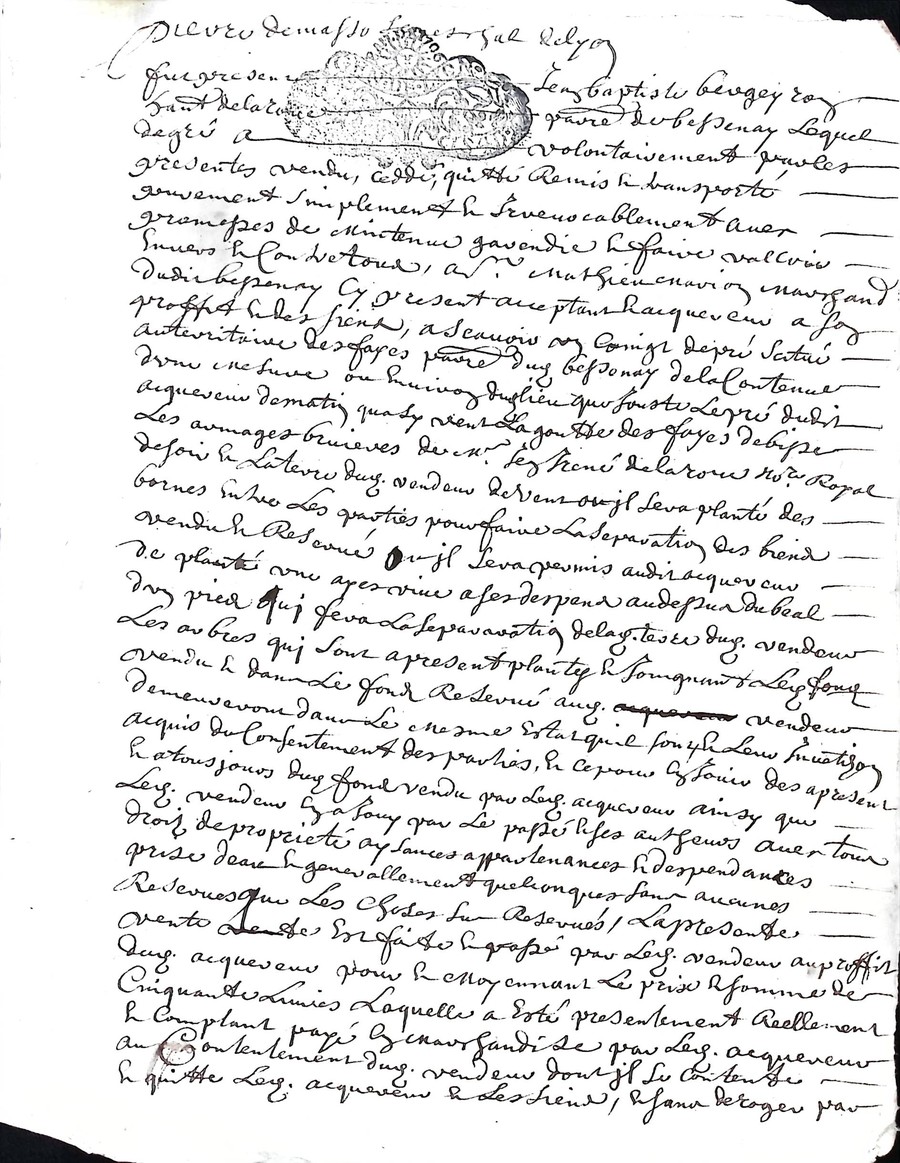 Pierre demasso seneschal delyon
fut present Jean baptiste bergeyron
hant delarouee parre de bessenay Lequel
degré a volontairement par les
presentes vendu, ceddé, quitté Remis et transporté
purement simplement et Irrevocablement avec
promesses de maintenue garendie et faire valloir
Envers et Contre tous, a Sr. Mathieu marion marchand
dudit bessenay Cy present acceptant et acquereur a son
proffit et des siens, a scavoir un Coing de pré scitué
au territoire des fayes parre dug bessenay de la Contenue
d'une mesure ou Environ dug lieu que Jouste Le pré dudit
acquereur de matin quasy vent La goutte des fayes de bize
Les avmages bruieres de Mr. Jean René de la roue nore Royal
de soir et La terre dug. vendeur de Vent ou il sera planté des
bornes Entre Les parties pour faire La separation des biens
vendu et Reservé ou il sera permis audit acquereur
de planté une aye vive a ses despens au dessus du beal
d'un pied qui fera La separaration delag. terre dug. vendeur
Les arbres qui sont a present plantes et Joignant Leg. fond
vendu et dans Le fond Reservé aug. vendeur
demeureront dans Le mesme Estat quil sont et Leur
acquis du Consentement des parties, et ce pour En Jouir des a present
et a tousjours dug fond vendu par Leg. acquereur ainsy que
Leg. vendeur En a Jouy par Le passé et ses autheurs avec tous
droits de proprieté aysances appartenances et despendances
prise deau et generallement quelconques sans aucunes
Reserves que Les choses sus Reservués / La presente
vente vente Est faite et passé par Leg. vendeur au proffit
dug. acquereur pour et moyennant Le prix et somme de
Cinquante Livres Laquelle a Esté presentement Reellement
et Comptant payé En marchandise par Leg. acquereur
au Contentement dug. vendeur dont il se Contente
et quitte Leg. acquereur et Les siens, et sans deroger par